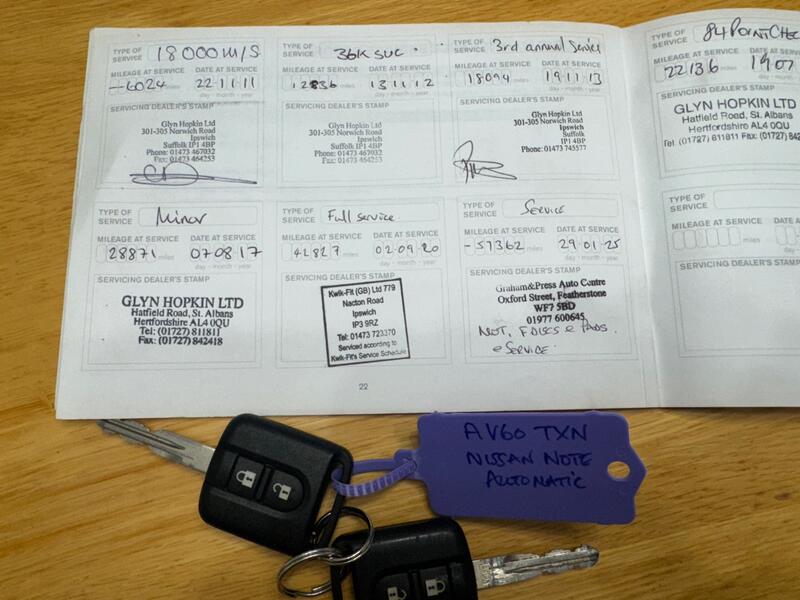 TYPE OF SERVICE 18000 m/s
MILEAGE AT SERVICE DATE AT SERVICE
miles 22 11 11
day - month - year
SERVICING DEALER'S STAMP
Glyn Hopkin Ltd
301-305 Norwich Road
Ipswich
Suffolk IP1 4BP
Phone: 01473 467032
Fax: 01473 464253
TYPE OF SERVICE 36K SVC.
MILEAGE AT SERVICE DATE AT SERVICE
12836 miles 13 11 12
day - month - year
SERVICING DEALER'S STAMP
Glyn Hopkin Ltd
301-305 Norwich Road
Ipswich
Suffolk IP1 4BP
Phone: 01473 467032
Fax: 01473 464253
TYPE OF SERVICE 3rd annual service
MILEAGE AT SERVICE DATE AT SERVICE
18094 miles 19 11 13
day - month - year
SERVICING DEALER'S STAMP
Glyn Hopkin Ltd
301-305 Norwich Road
Ipswich
Suffolk
IP1 4BP
Phone: 01473 745577
TYPE OF SERVICE 84 Point Chec
MILEAGE AT SERVICE DATE AT SER
22136 miles 19 07
day - m
SERVICING DEALER'S STAMP
GLYN HOPKIN LTD
Hatfield Road, St. Albans
Hertfordshire AL4 0QU
Tel: (01727) 811811 Fax: (01727) 842
TYPE OF SERVICE Minor
MILEAGE AT SERVICE DATE AT SERVICE
28871 miles 07 08 17
day - month - year
SERVICING DEALER'S STAMP
GLYN HOPKIN LTD
Hatfield Road, St. Albans
Hertfordshire AL4 0QU
Tel: (01727) 811811
Fax: (01727) 842418
TYPE OF SERVICE Full service
MILEAGE AT SERVICE DATE AT SERVICE
42827 miles 02-09-20
day - month - year
SERVICING DEALER'S STAMP
Kwik-Fit (GB) Ltd 779
Nacton Road
Ipswich
IP3 9RZ
Tel: 01473 723370
Serviced according to
Kwik-Fit's Service Schedule
TYPE OF SERVICE Service
MILEAGE AT SERVICE DATE AT SERVICE
-57362 miles 29 01 25
day - month - year
SERVICING DEALER'S STAMP
Graham&Press Auto Centre
Oxford Street, Featherstone
WF7 5BD
01977 600645
MOT, F DISCS & PADS
& SERVICE.
TYPE OF SERVICE
MILEAGE AT SERVICE DATE AT SE
miles
day -
SERVICING DEALER'S STAMP
22
AV60 TXN
NISSAN NOTE
AUTOMATIC